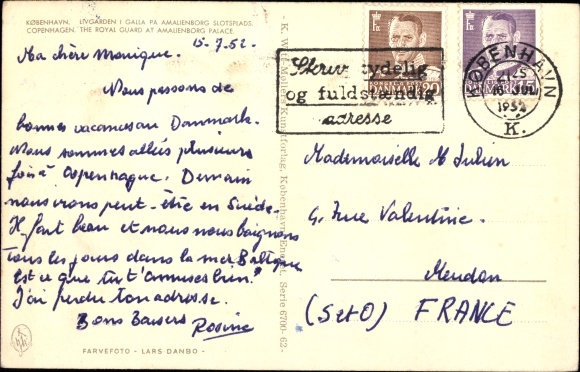 KØBENHAVN. LIVGARDEN I GALLA PÅ AMALIENBORG SLOTSPLADS.
COPENHAGEN. THE ROYAL GUARD AT AMALIENBORG PALACE.
15-7.52.
Ma chère Monique.
Nous passons de
bonnes vacances au Danmark.
Nous sommes allés plusieurs
fois à Copenhague. Demain
nous irons peut-être en Suède.
Il fait beau et nous nous baignons
tous les jours dans la mer Baltique
Est ce que tu t'amuses bien?
J'ai perdu ton adresse.
Bons Baisers
Rosine
FARVEFOTO - LARS DANBO -
- K. Witt-Møllers Kunstforlag, København Eneret. Serie 6700-62-
Skriv tydelig
og fuldstændig
adresse
DANMARK 20
DANMARK 15
KØBENHAVN
1952
K.
Mademoiselle M Julien
4, rue Valentine.
Meudon
(S et O) FRANCE